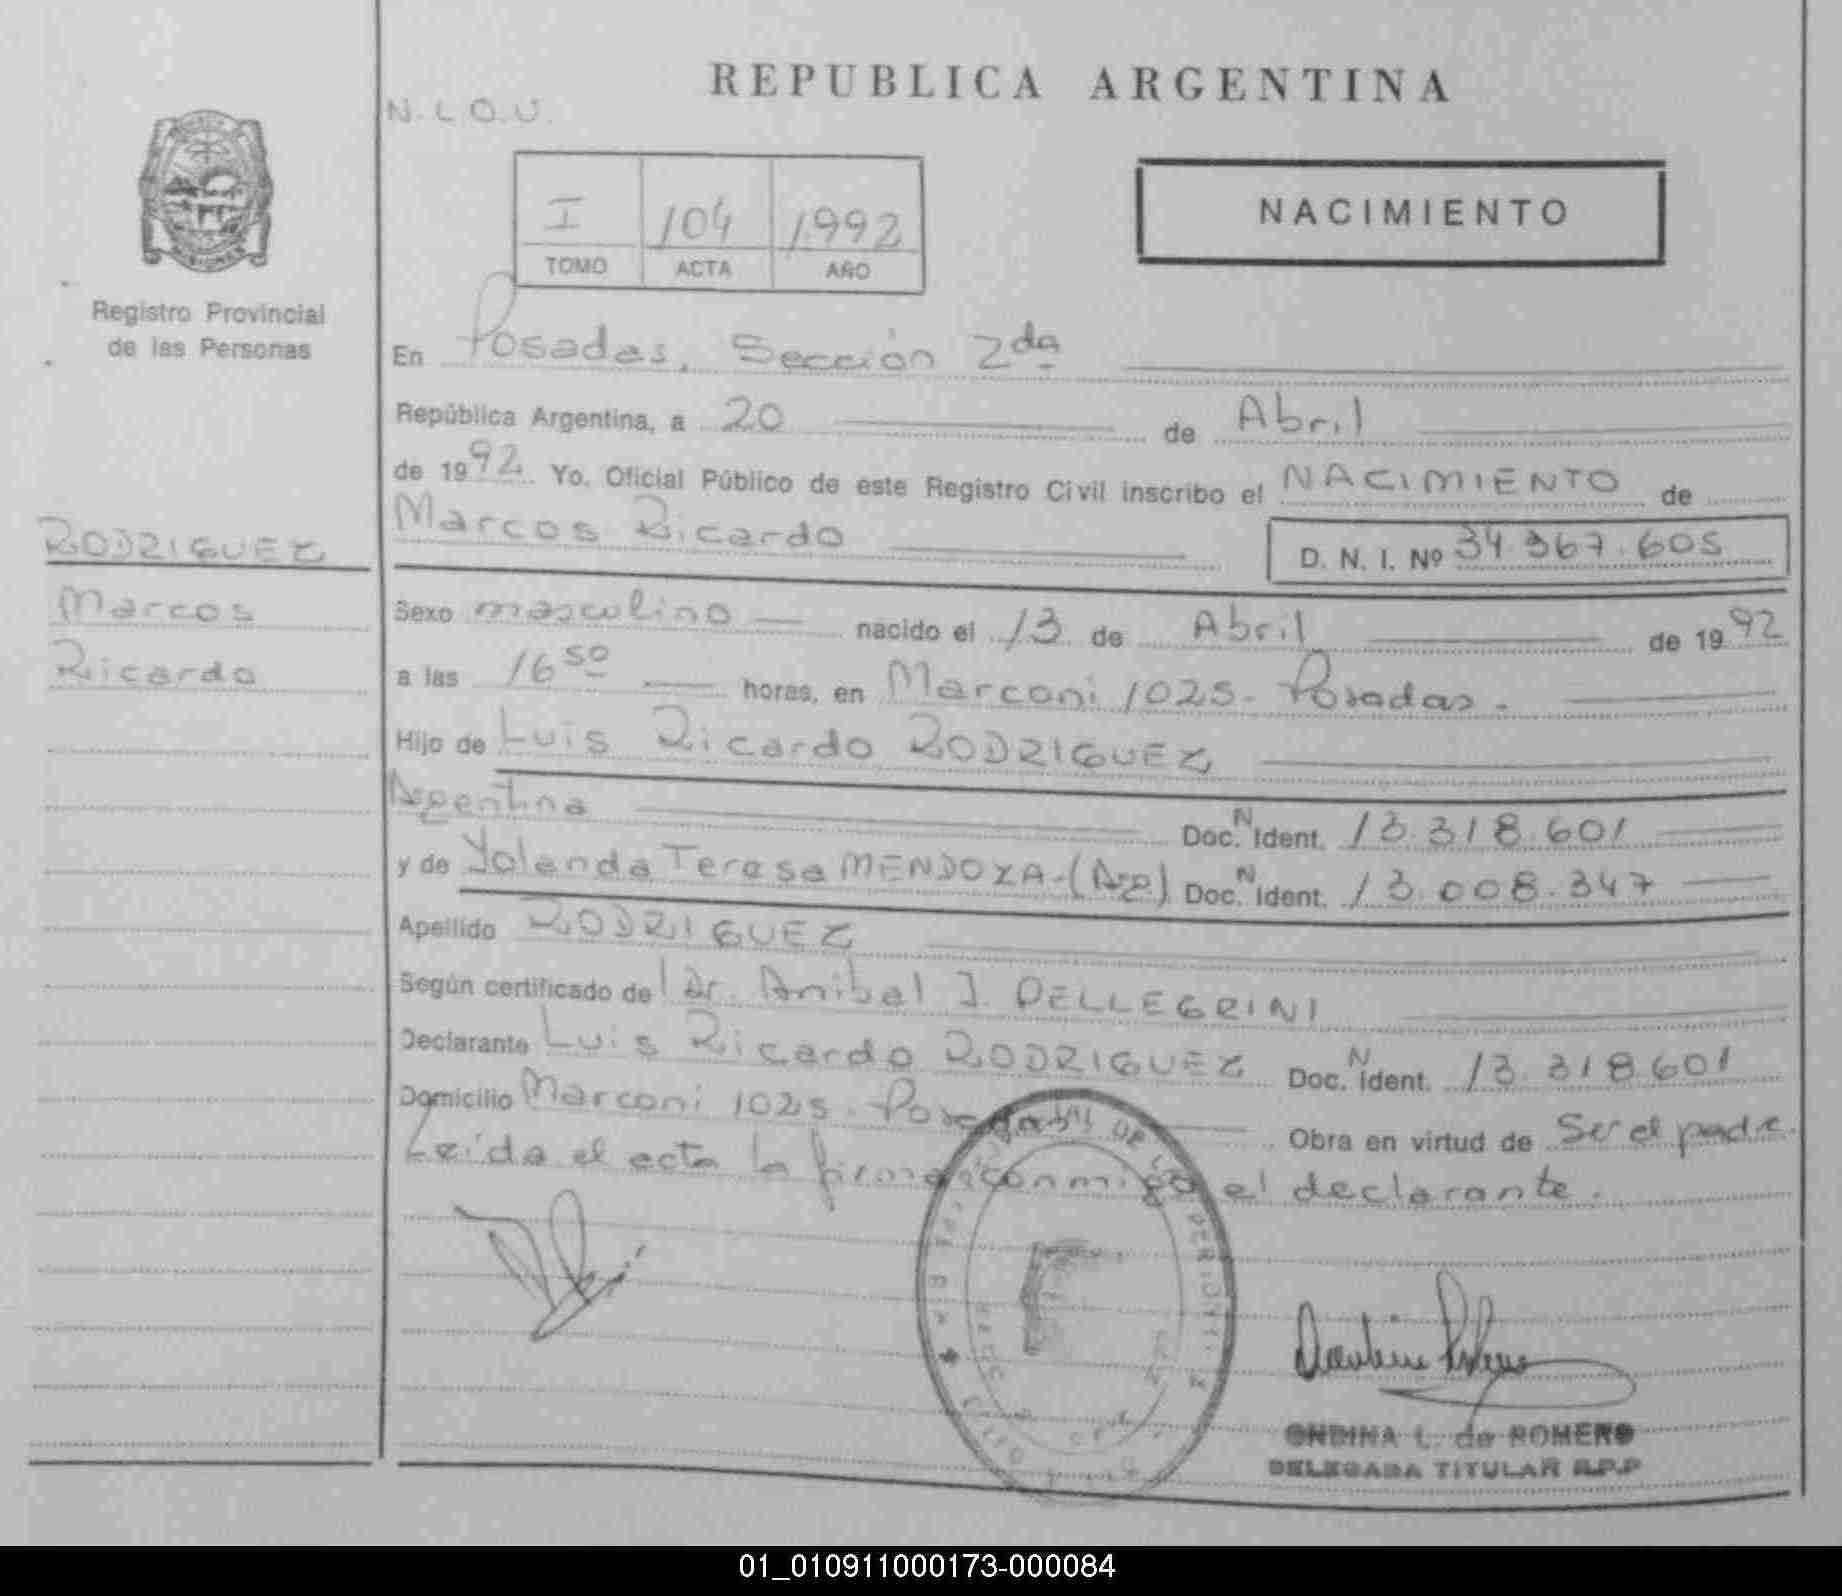 REPUBLICA ARGENTINA
N.L.O.U.
I 104 1992
TOMO ACTA AÑO
NACIMIENTO
Registro Provincial
de las Personas
RODRIGUEZ
Marcos
Ricardo
En Posadas, Sección 2da
República Argentina, a 20 de Abril
de 1992 Yo, Oficial Público de este Registro Civil inscribo el NACIMIENTO de
Marcos Ricardo D. N. I. Nº 34.367.605
Sexo masculino nacido el 13 de Abril de 1992
a las 16 50 horas, en Marconi 1025- Posadas.
Hijo de Luis Ricardo RODRIGUEZ
Argentina Doc. N Ident. 13.318.601
y de Yolanda Teresa MENDOZA-(Arg) Doc. N Ident. 13.008.347
Apellido RODRIGUEZ
Según certificado del Dr. Anibal J. PELLEGRINI
Declarante Luis Ricardo RODRIGUEZ Doc. N Ident. 13.318.601
Domicilio Marconi 1025. Posadas Obra en virtud de Ser el padre.
Leída el acta la firma conmigo el declarante.
ONDINA L. de ROMERO
DELEGADA TITULAR R.P.P
01_010911000173-000084